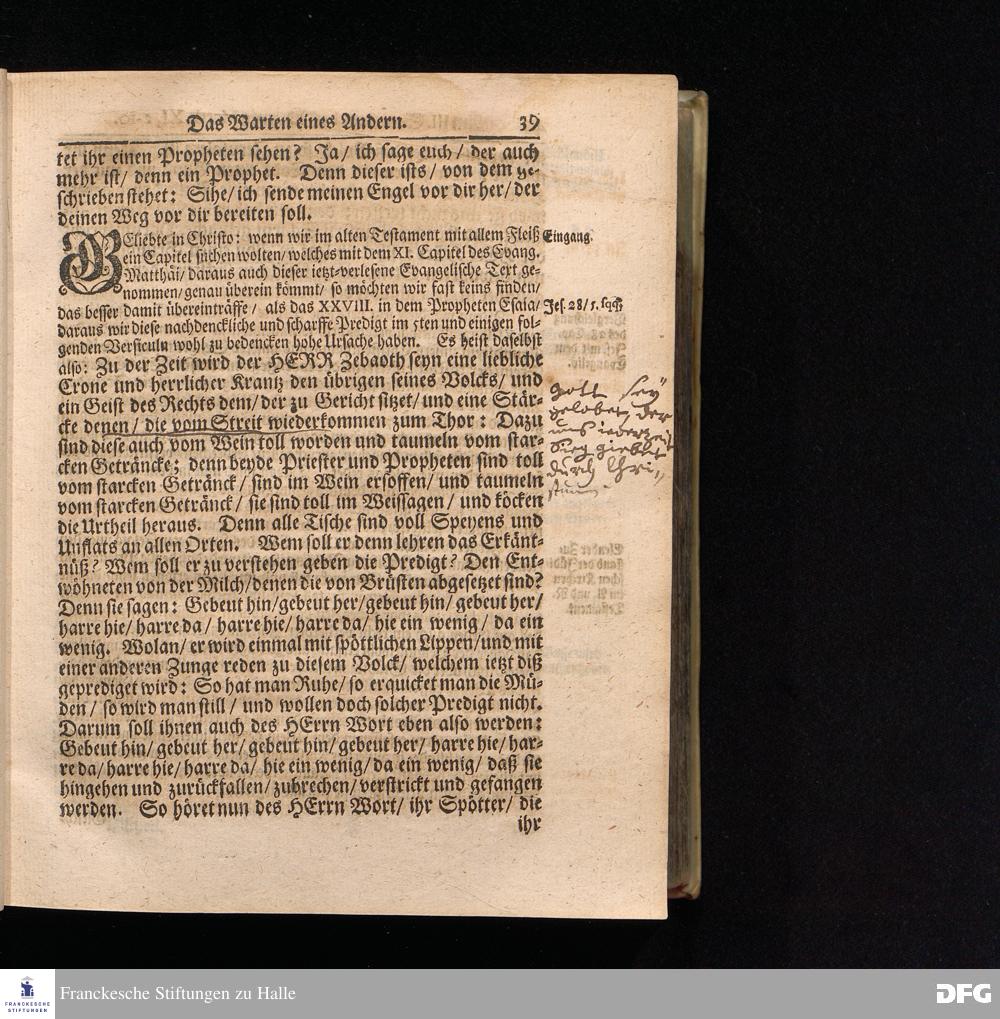 Das Warten eines Andern. 39
tet ihr einen Propheten sehen? Ja/ ich sage euch/ der auch
mehr ist/ denn ein Prophet. Denn dieser ists/ von dem ge-
schrieben stehet: Sihe/ ich sende meinen Engel vor dir her/ der
deinen Weg vor dir bereiten soll.
GEliebte in Christo: wenn wir im alten Testament mit allem Fleiß
Eingang.
ein Capitel suchen wolten/ welches mit dem XI. Capitel des Evang.
Matthäi/ daraus auch dieser ietzt-verlesene Evangelische Text ge-
nommen/ genau überein kömmt/ so möchten wir fast keins finden/
das besser damit übereinträffe/ als das XXVIII. in dem Propheten Esaia/
Jes. 28/5. sqq.
daraus wir diese nachdenckliche und scharffe Predigt im 5ten und einigen fol-
genden Versiculn wohl zu bedencken hohe Ursache haben. Es heist daselbst
also: Zu der Zeit wird der HERR Zebaoth seyn eine liebliche
Crone und herrlicher Krantz den übrigen seines Volcks/ und
ein Geist des Rechts dem/ der zu Gericht sitzet/ und eine Stär-
cke denen/ die vom Streit wiederkommen zum Thor: Dazu
sind diese auch vom Wein toll worden und taumeln vom star-
cken Geträncke; denn beyde Priester und Propheten sind toll
vom starcken Getränck/ sind im Wein ersoffen/ und taumeln
vom starcken Getränck/ sie sind toll im Weissagen/ und köcken
die Urtheil heraus. Denn alle Tische sind voll Speyens und
Unflats an allen Orten. Wem soll er denn lehren das Erkänt-
nüß? Wem soll er zu verstehen geben die Predigt? Den Ent-
wöhneten von der Milch/ denen die von Brüsten abgesetzet sind?
Denn sie sagen: Gebeut hin/ gebeut her/ gebeut hin/ gebeut her/
harre hie/ harre da/ harre hie/ harre da/ hie ein wenig/ da ein
wenig. Wolan/ er wird einmal mit spöttlichen Lippen/ und mit
einer anderen Zunge reden zu diesem Volck/ welchem ietzt diß
geprediget wird: So hat man Ruhe/ so erquicket man die Mü-
den/ so wird man still/ und wollen doch solcher Predigt nicht.
Darum soll ihnen auch des HErrn Wort eben also werden:
Gebeut hin/ gebeut her/ gebeut hin/ gebeut her/ harre hie/ har-
re da/ harre hie/ harre da/ hie ein wenig/ da ein wenig/ daß sie
hingehen und zurückfallen/ zubrechen/ verstrickt und gefangen
werden. So höret nun des HErrn Wort/ ihr Spötter/ die
ihr
Gott sey
gelobet, der
uns
Sieg giebet
durch Chri-
stum.
FRANCKESCHE
STIFTUNGEN
Franckesche Stiftungen zu Halle
DFG